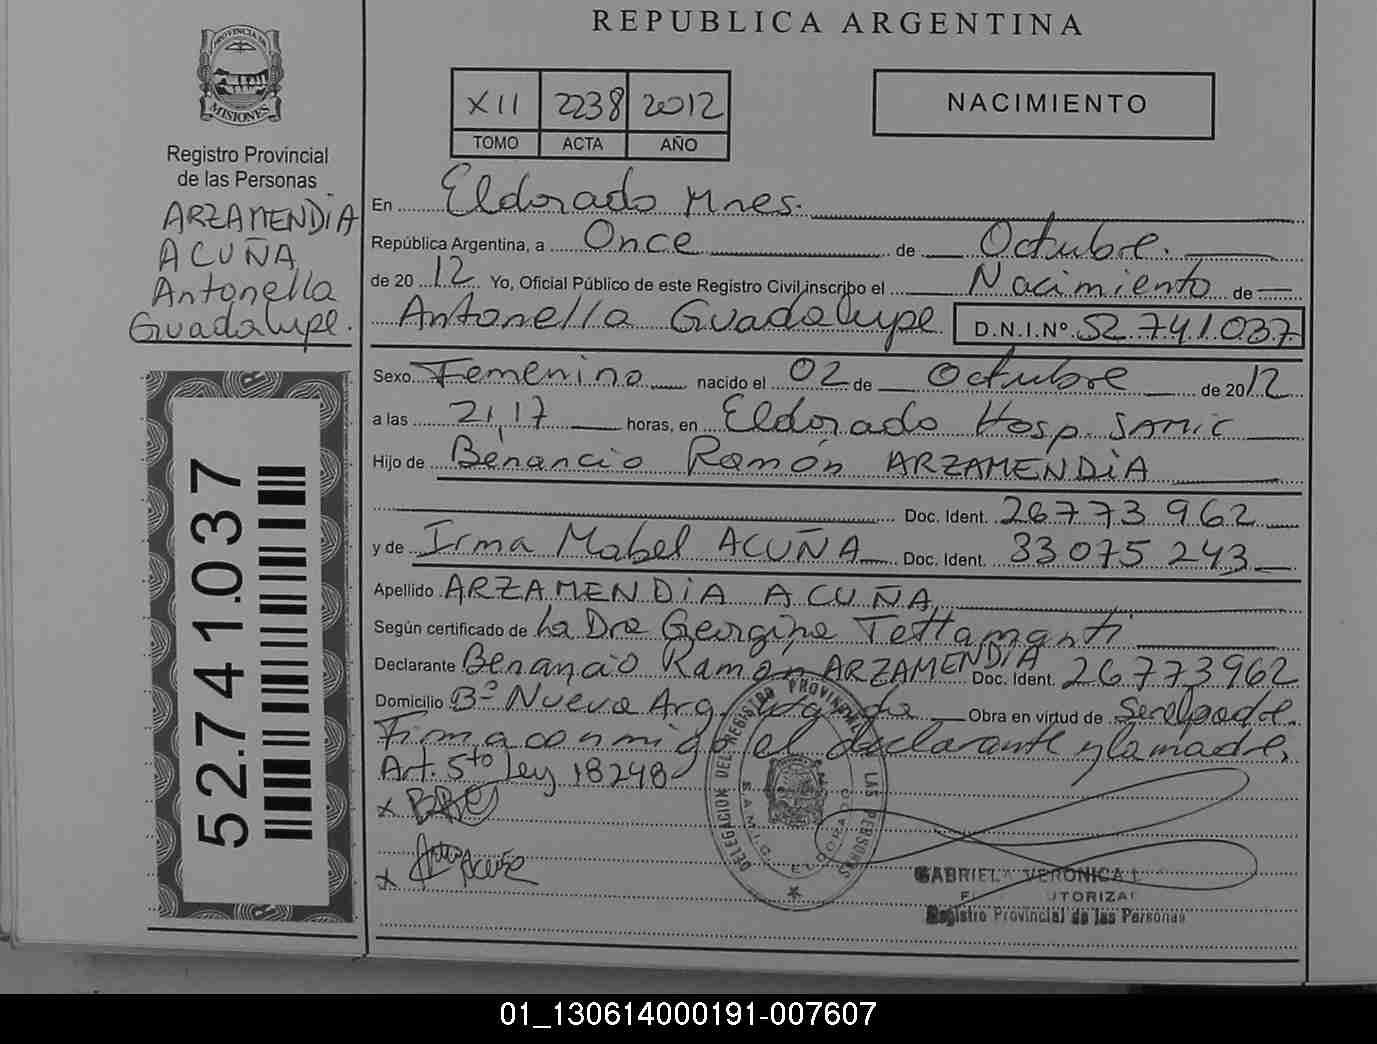 REPUBLICA ARGENTINA
PROVINCIA DE
MISIONES
Registro Provincial
de las Personas
ARZAMENDIA
ACUÑA
Antonella
Guadalupe.
52.741.037
XII 2238 2012
TOMO ACTA AÑO
NACIMIENTO
En Eldorado Mnes.
República Argentina, a Once de Octubre.
de 20 12 Yo, Oficial Público de este Registro Civil inscribo el Nacimiento de
Antonella Guadalupe D.N.I.Nº 52.741.037
Sexo Femenino nacido el 02 de Octubre de 2012
a las 21,17 horas, en Eldorado Hosp. SAMIC
Hijo de Benancio Ramón ARZAMENDIA
Doc. Ident. 26773962
y de Irma Mabel ACUÑA Doc. Ident. 33075243
Apellido ARZAMENDIA ACUÑA
Según certificado de La Dra Georgina Tettamanti
Declarante Benancio Ramon ARZAMENDIA Doc. Ident. 26773962
Domicilio Bº Nueva Arg. Obra en virtud de Ser el padre.
Firma conmigo el declarante y la madre,
Art. 5to Ley 18248
x
x Acuña
DELEGACION DEL REGISTRO PROVINCIAL DE LAS PERSONAS
S.A.M.I.C. ELDORADO
GABRIELA VERONICA
Registro Provincial de las Personas
01_130614000191-007607